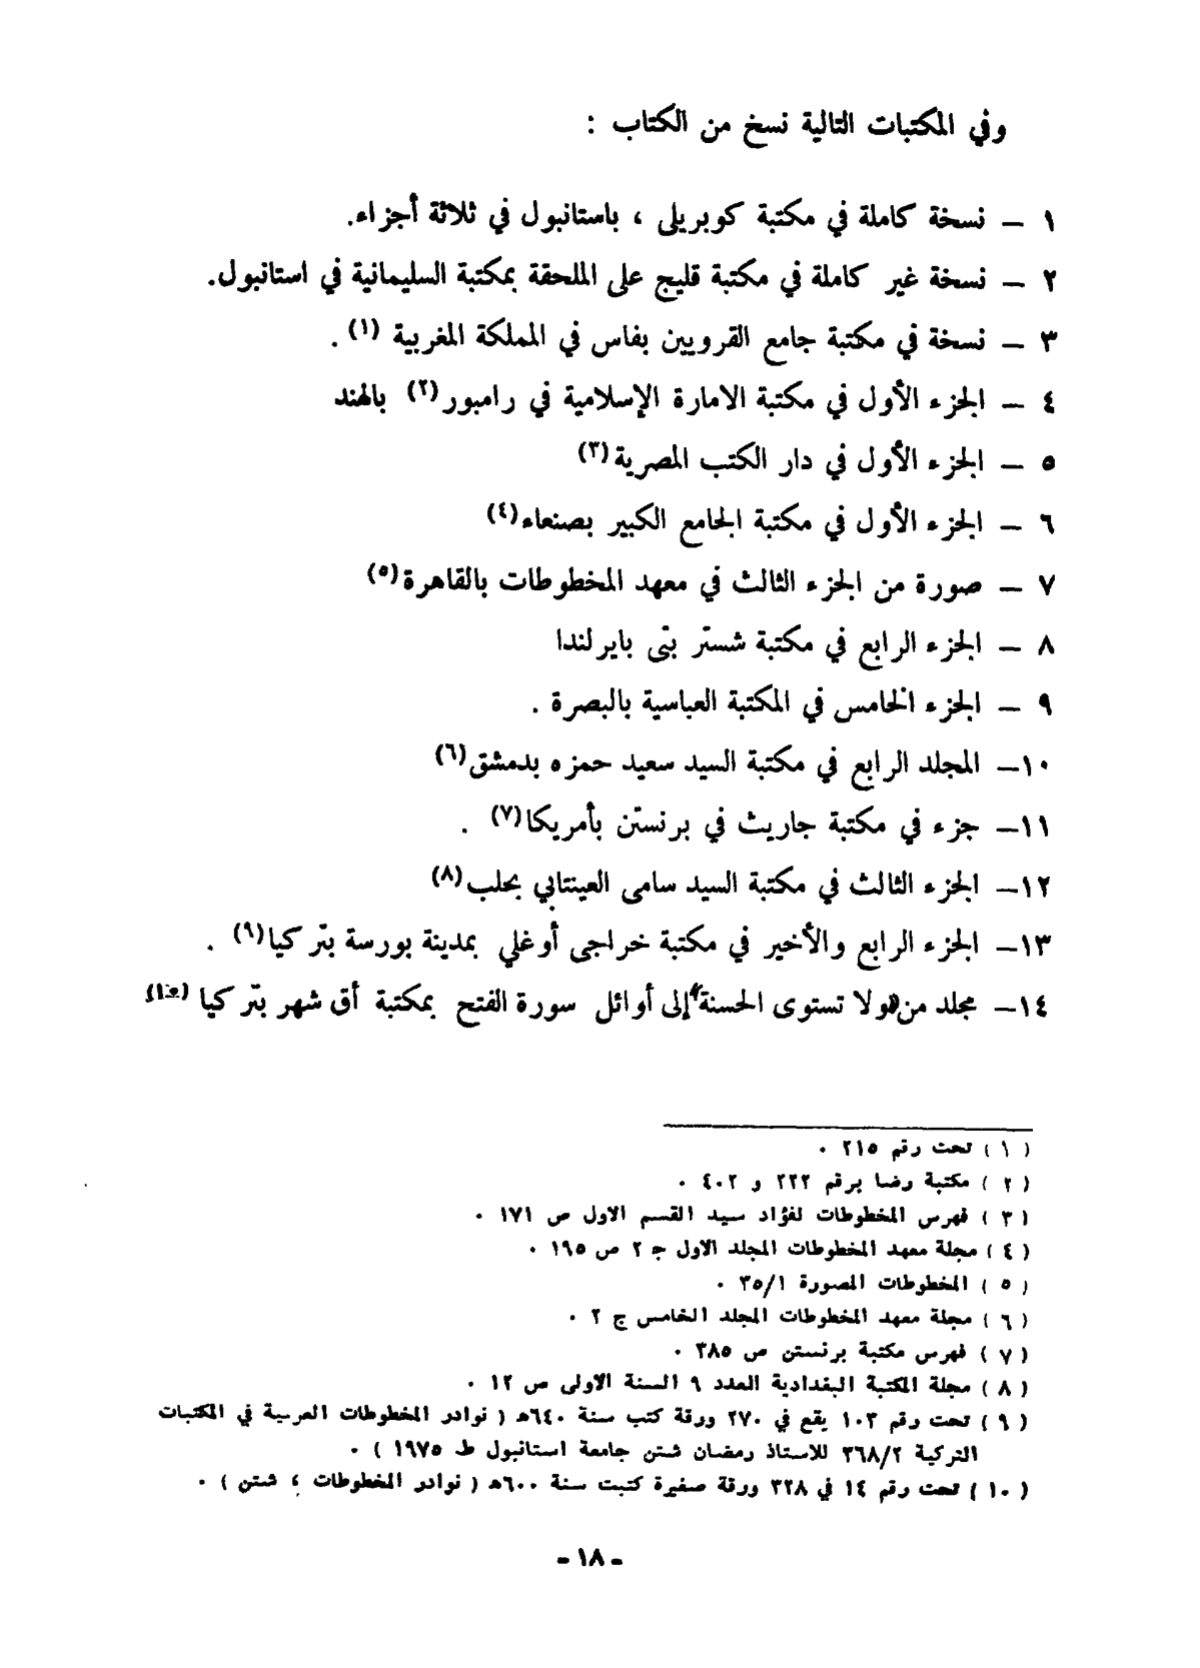 وفي المكتبات التالية نسخ من الكتاب :
١ – نسخة كاملة في مكتبة كوبريلى ، باستانبول في ثلاثة أجزاء.
٢ – نسخة غير كاملة في مكتبة قليج على الملحقة بمكتبة السليمانية في استانبول.
٣ – نسخة في مكتبة جامع القرويين بفاس في المملكة المغربية (١) .
٤ – الجزء الأول في مكتبة الامارة الإسلامية في رامبور(٢) بالهند
٥ – الجزء الأول في دار الكتب المصرية(٣)
٦ – الجزء الأول في مكتبة الجامع الكبير بصنعاء(٤)
٧ – صورة من الجزء الثالث في معهد المخطوطات بالقاهرة(٥)
٨ – الجزء الرابع في مكتبة شستر بتى بايرلندا
٩ – الجزء الخامس في المكتبة العباسية بالبصرة .
١٠– المجلد الرابع في مكتبة السيد سعيد حمزه بدمشق(٦)
١١– جزء في مكتبة جاريث في برنستن بأمريكا(٧) .
١٢– الجزء الثالث في مكتبة السيد سامى العينتابي بحلب(٨)
١٣– الجزء الرابع والأخير في مكتبة خراجى أوغلي بمدينة بورسة بتركيا(٩) .
١٤– مجلد من﴿ولا تستوى الحسنة﴾إلى أوائل سورة الفتح بمكتبة أق شهر بتركيا (١٠)
( ١ ) تحت رقم ٢١٥ .
( ٢ ) مكتبة رضا برقم ٢٢٢ و ٤٠٢ .
( ٣ ) فهرس المخطوطات لفؤاد سيد القسم الاول ص ١٧١ .
( ٤ ) مجلة معهد المخطوطات المجلد الاول ج ٢ ص ١٩٥ .
( ٥ ) المخطوطات المصورة ٣٥/١ .
( ٦ ) مجلة معهد المخطوطات المجلد الخامس ج ٢ .
( ٧ ) فهرس مكتبة برنستن ص ٣٨٥ .
( ٨ ) مجلة المكتبة البغدادية العدد ٩ السنة الاولى ص ١٢ .
( ٩ ) تحت رقم ١٠٣ يقع في ٢٧٠ ورقة كتب سنة ٦٤٠هـ ( نوادر المخطوطات العربية في المكتبات
التركية ٣٦٨/٢ للاستاذ رمضان شتن جامعة استانبول ط ١٩٧٥ ) .
( ١٠ ) تحت رقم ١٤ في ٣٢٨ ورقة صغيرة كتبت سنة ٦٠٠هـ ( نوادر المخطوطات ، شتن ) .
- ١٨ -